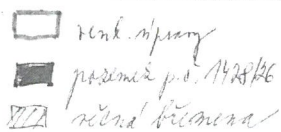 venk. úpravy
pozemek p.č. 1428/26
věčná břemena